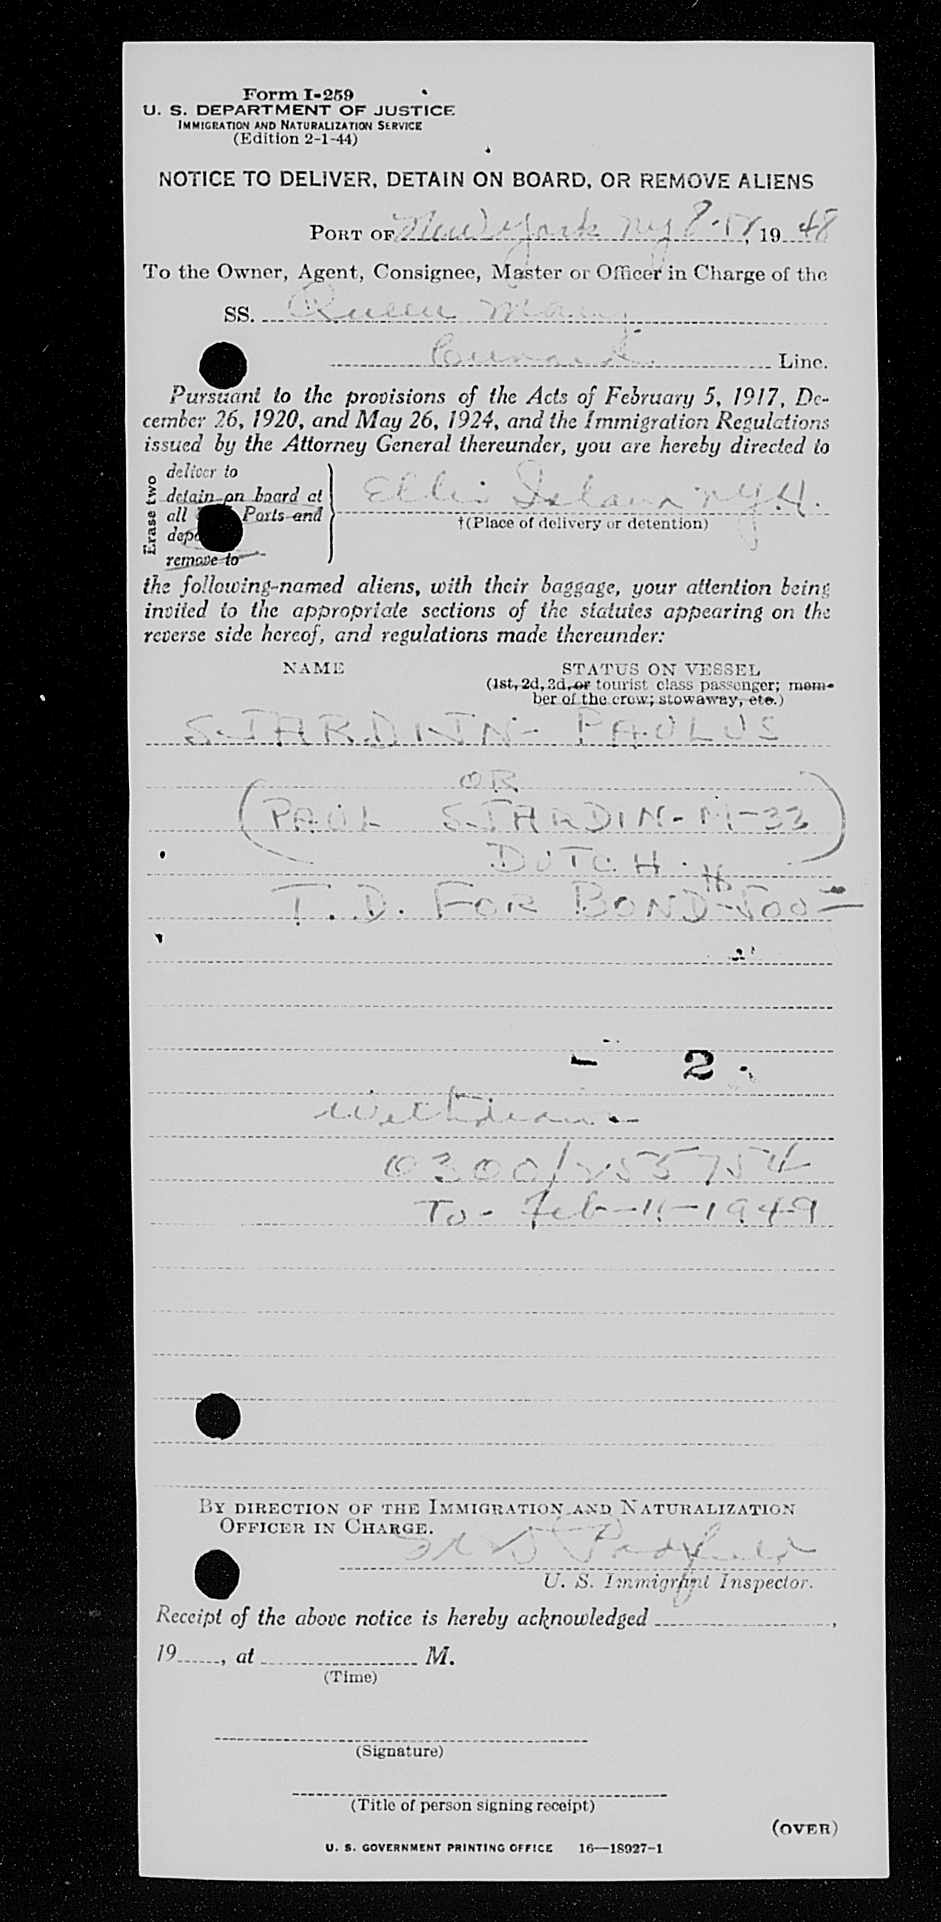 Form I-259
U. S. DEPARTMENT OF JUSTICE
IMMIGRATION AND NATURALIZATION SERVICE
(Edition 2-1-44)
NOTICE TO DELIVER, DETAIN ON BOARD, OR REMOVE ALIENS
PORT OF New York NY 8- , 19 48
To the Owner, Agent, Consignee, Master or Officer in Charge of the
SS. Queen Mary
Cunard Line.
Pursuant to the provisions of the Acts of February 5, 1917, De-
cember 26, 1920, and May 26, 1924, and the Immigration Regulations
issued by the Attorney General thereunder, you are hereby directed to
Erase two
deliver to
detain on board at
all Ports and
remove to
Ellis Island NY.H.
†(Place of delivery or detention)
the following-named aliens, with their baggage, your attention being
invited to the appropriate sections of the statutes appearing on the
reverse side hereof, and regulations made thereunder:
NAME STATUS ON VESSEL
(1st, 2d, 3d, or tourist class passenger; mem-
ber of the crew; stowaway, etc.)
STARDIJN - PAULUS
OR
(PAUL STARDIN - M - 33)
DUTCH. H
T. D. FOR BOND - 500 -
- 2
Withdrawn -
0300/255754
To - Feb - 11 - 1949
BY DIRECTION OF THE IMMIGRATION AND NATURALIZATION
OFFICER IN CHARGE.
U. S. Immigrant Inspector.
Receipt of the above notice is hereby acknowledged ,
19 , at M.
(Time)
(Signature)
(Title of person signing receipt)
(OVER)
U. S. GOVERNMENT PRINTING OFFICE 16—18927-1